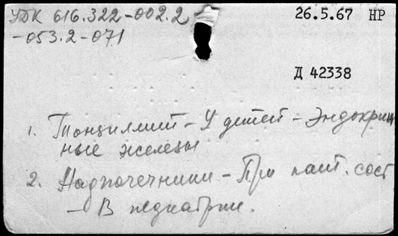 УДК 616.322-002.2
-053.2-071
26.5.67 НР
Д 42338
1. Тонзиллит - У детей - Эндокрин
ные железы
2. Надпочечники - При пат. сост
- В педиатрии.